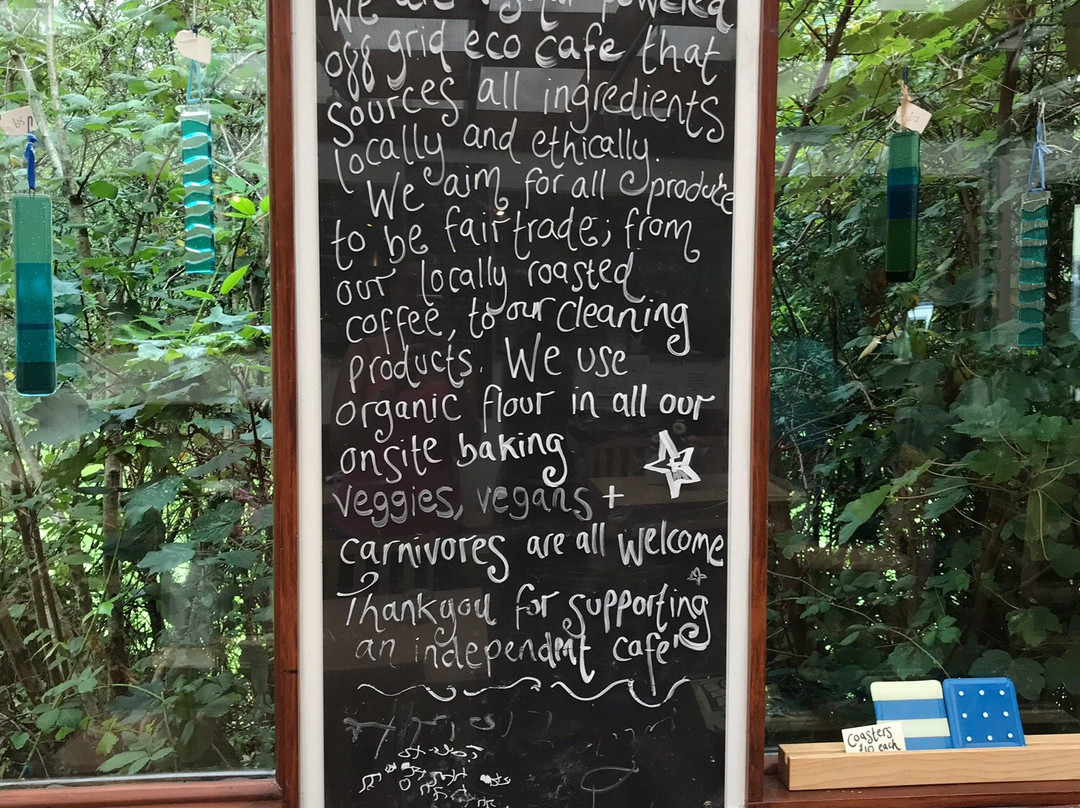 We are
powered
off grid eco cafe that
sources all ingredients
locally and ethically.
We aim for all produce
to be fair trade; from
our locally roasted
coffee, to our cleaning
products. We use
organic flour in all our
onsite baking
veggies, vegans +
carnivores are all welcome
Thankyou for supporting
an independent cafe
Coasters
£10 each